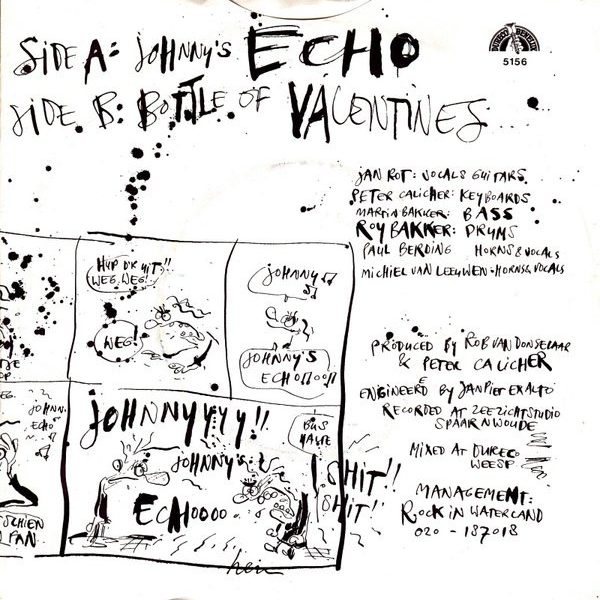 SIDE A: JOHNNY'S ECHO
SIDE B: BOTTLE OF VALENTINES
5156
JAN ROT: VOCALS GUITARS
PETER CALICHER: KEYBOARDS
MARTIN BAKKER: BASS
ROY BAKKER: DRUMS
PAUL BERDING HORNS & VOCALS
MICHIEL VAN LEEUWEN - HORNS & VOCALS
HUP D'R UIT!!
WEG, WEG!
WEG!
JOHNNY
JOHNNY'S
ECHOOOO!!
PRODUCED BY ROB VAN DONSELAAR
& PETER CALICHER
ENGINEERED BY JANPIETER AALTO
RECORDED AT ZEEZICHTSTUDIO
SPAARNWOUDE
MIXED AT DURECO
WEESP
MANAGEMENT:
ROCK IN WATERLAND
020 - 187018
JOHNN.
ECHO
SCHIEN
FAN
JOHNNYYYY!!
JOHNNY'S
ECHOOOO
BUS
HALTE
SHIT!!
SHIT!
hein